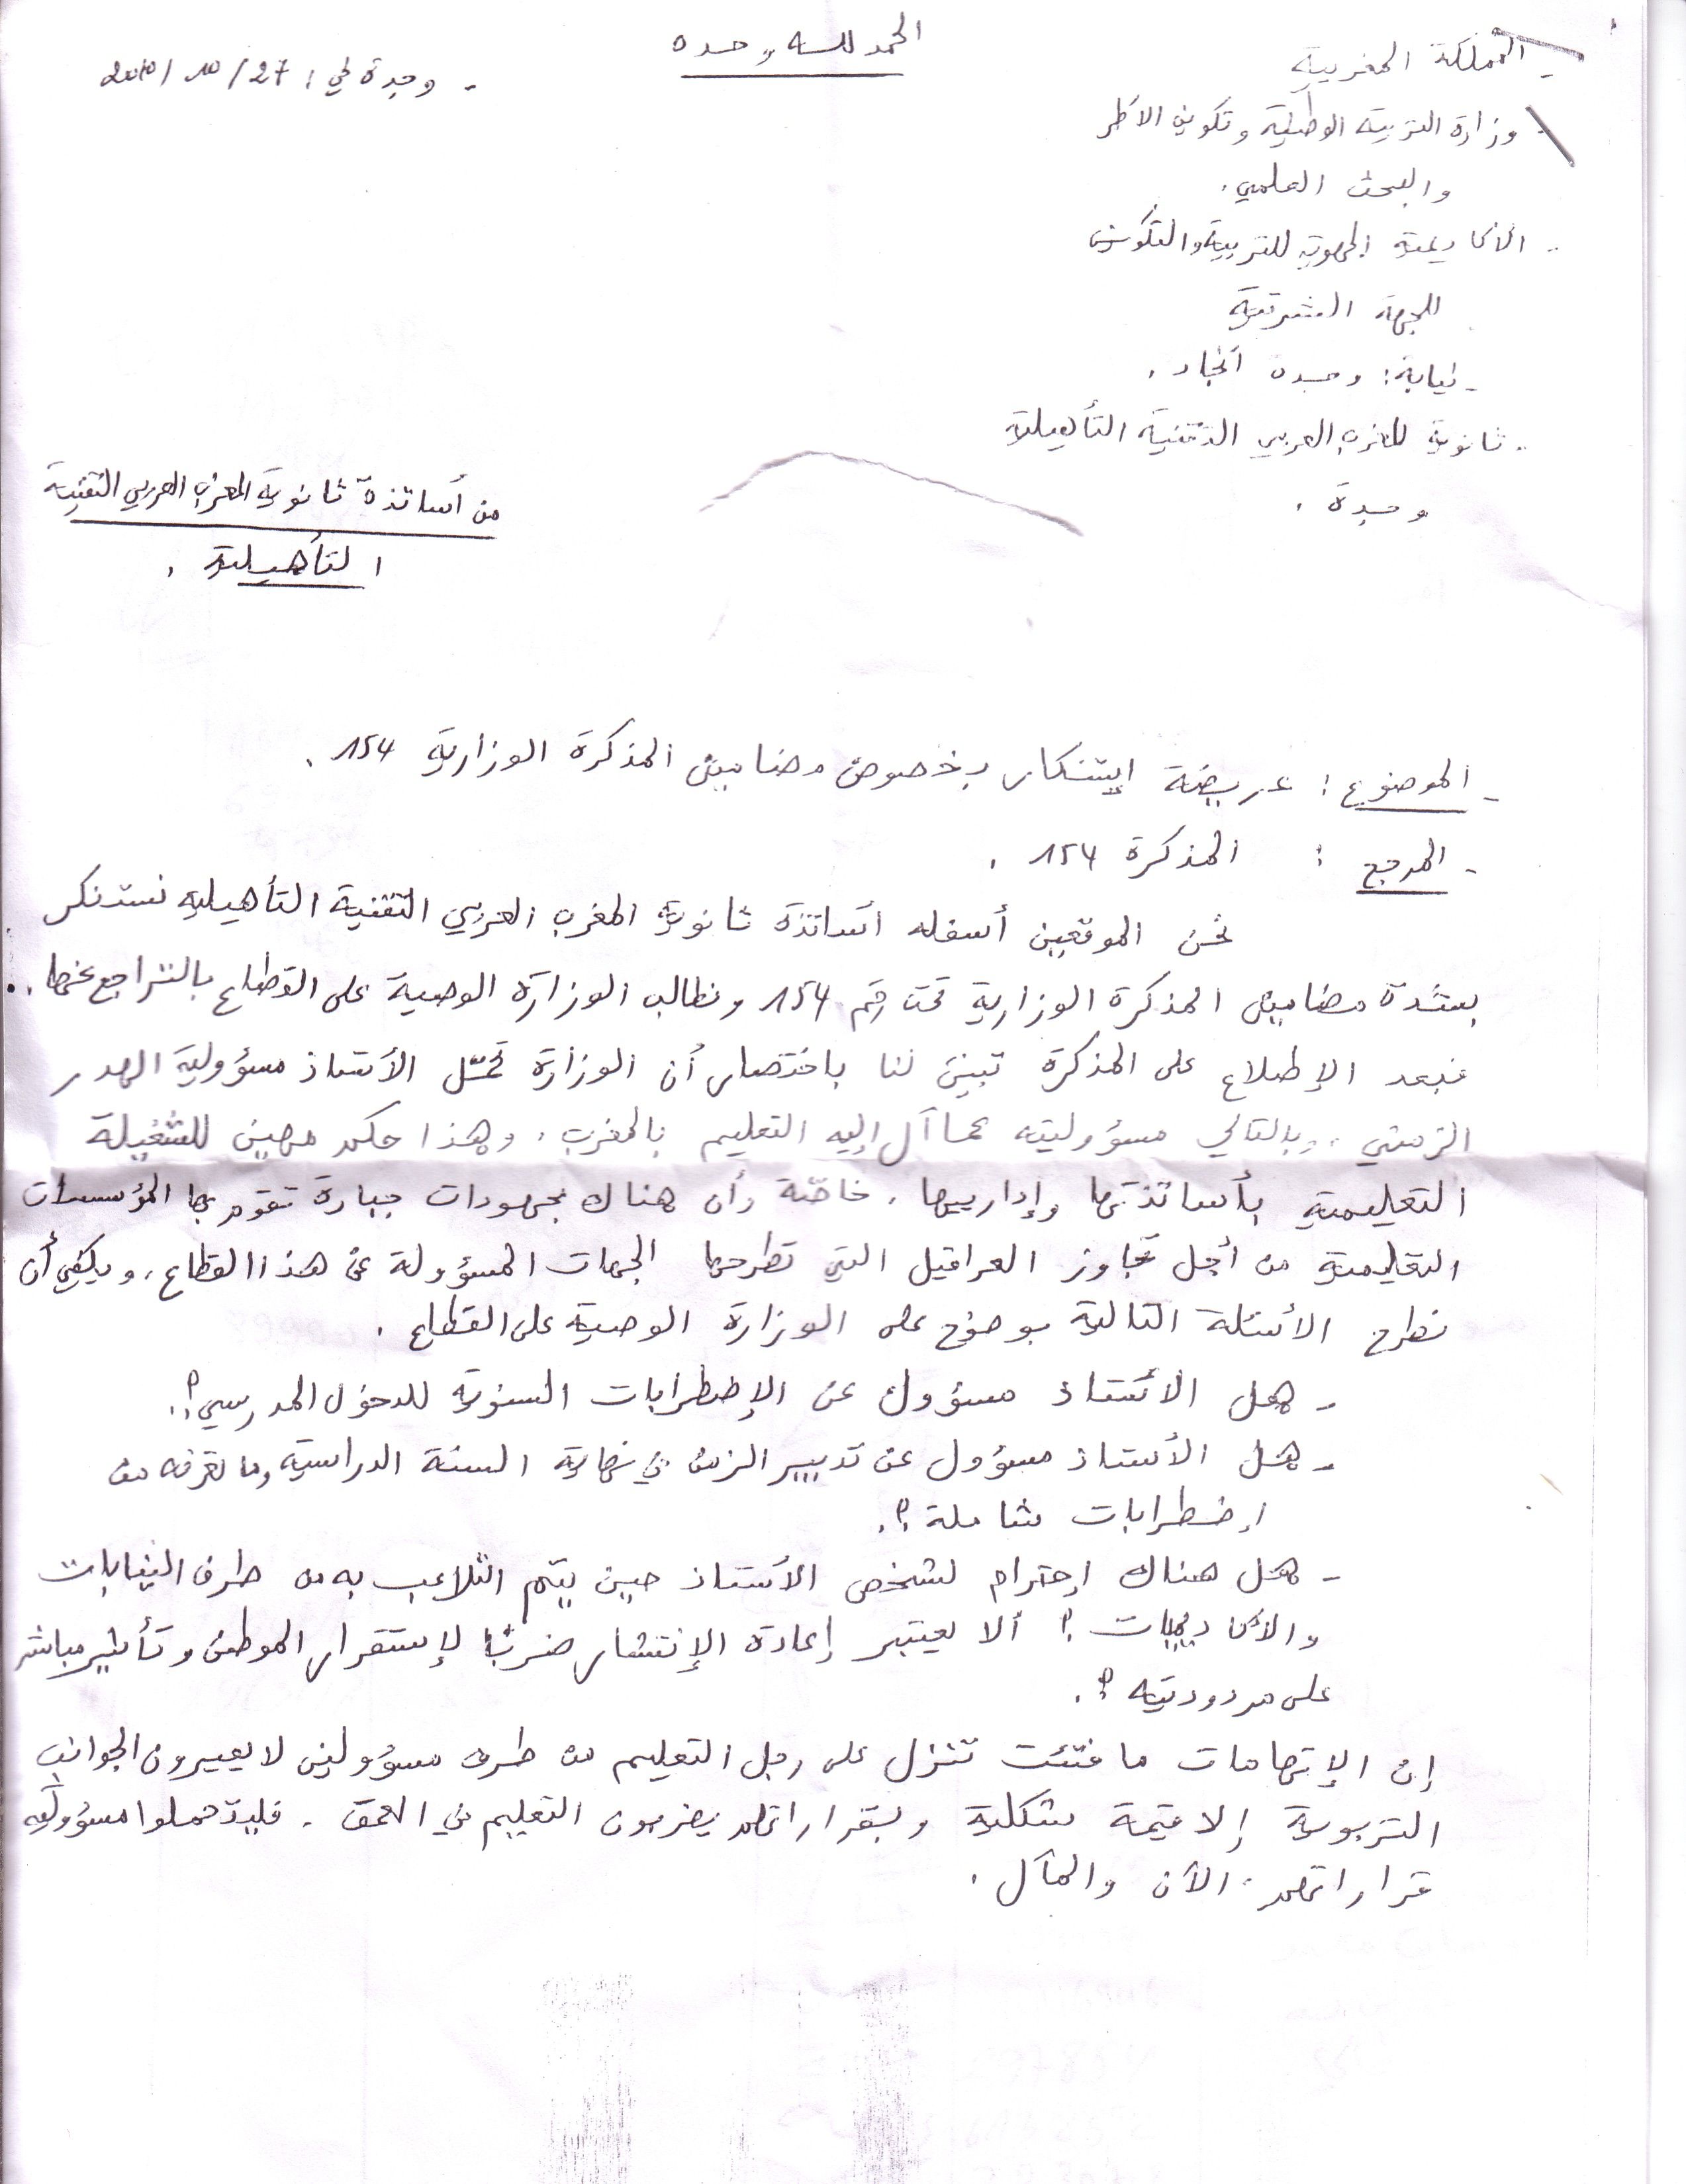 الحمد لله وحده
- المملكة المغربية
- وجدة في: 27/10/2010
- وزارة التربية الوطنية وتكوين الأطر
والبحث العلمي.
- الأكاديمية الجهوية للتربية والتكوين
للجهة الشرقية
- نيابة: وجدة أنجاد.
- ثانوية المغرب العربي التقنية التأهيلية
وجدة.
من أساتذة ثانوية المغرب العربي التقنية
التأهيلية.
- الموضوع: عريضة إستنكار بخصوص مضامين المذكرة الوزارية 154.
- المرجع: المذكرة 154.
نحن الموقعين أسفله أساتذة ثانوية المغرب العربي التقنية التأهيلية نستنكر
بشدة مضامين المذكرة الوزارية تحت رقم 154 ونطالب الوزارة الوصية على القطاع بالتراجع عنها..
فبعد الإطلاع على المذكرة تبين لنا باختصار أن الوزارة تحمّل الأستاذ مسؤولية الهدر
الزمني، وبالتالي مسؤوليته عما آل إليه التعليم بالمغرب، وهذا حكم مهين للشغيلة
التعليمية بأساتذتها وإدارييها، خاصّة وأن هناك مجهودات جبارة تقوم بها المؤسسات
التعليمية من أجل تجاوز العراقيل التي تطرحها الجهات المسؤولة عن هذا القطاع، ويكفي أن
نطرح الأسئلة التالية بوضوح على الوزارة الوصية على القطاع.
- هل الأستاذ مسؤول عن الإضطرابات السنوية للدخول المدرسي؟.
- هل الأستاذ مسؤول عن تدبير الزمن في نهاية السنة الدراسية وما تعرفه من
إضطرابات شاملة؟.
- هل هناك إحترام لشخص الأستاذ حين يتم التلاعب به من طرف النيابات
والأكاديميات؟ ألا يعتبر إعادة الإنتشار ضربًا لإستقرار الموظف وتأثير مباشر
على مردوديته؟.
إن الإتهامات ما فتئت تنزل على رجل التعليم من طرف مسؤولين لا يعيرون الجوانب
التربوية إلا قيمة شكلية وبقراراتهم يضربون التعليم في العمق. فليتحملوا مسؤولية
قراراتهم الآن والمآل.